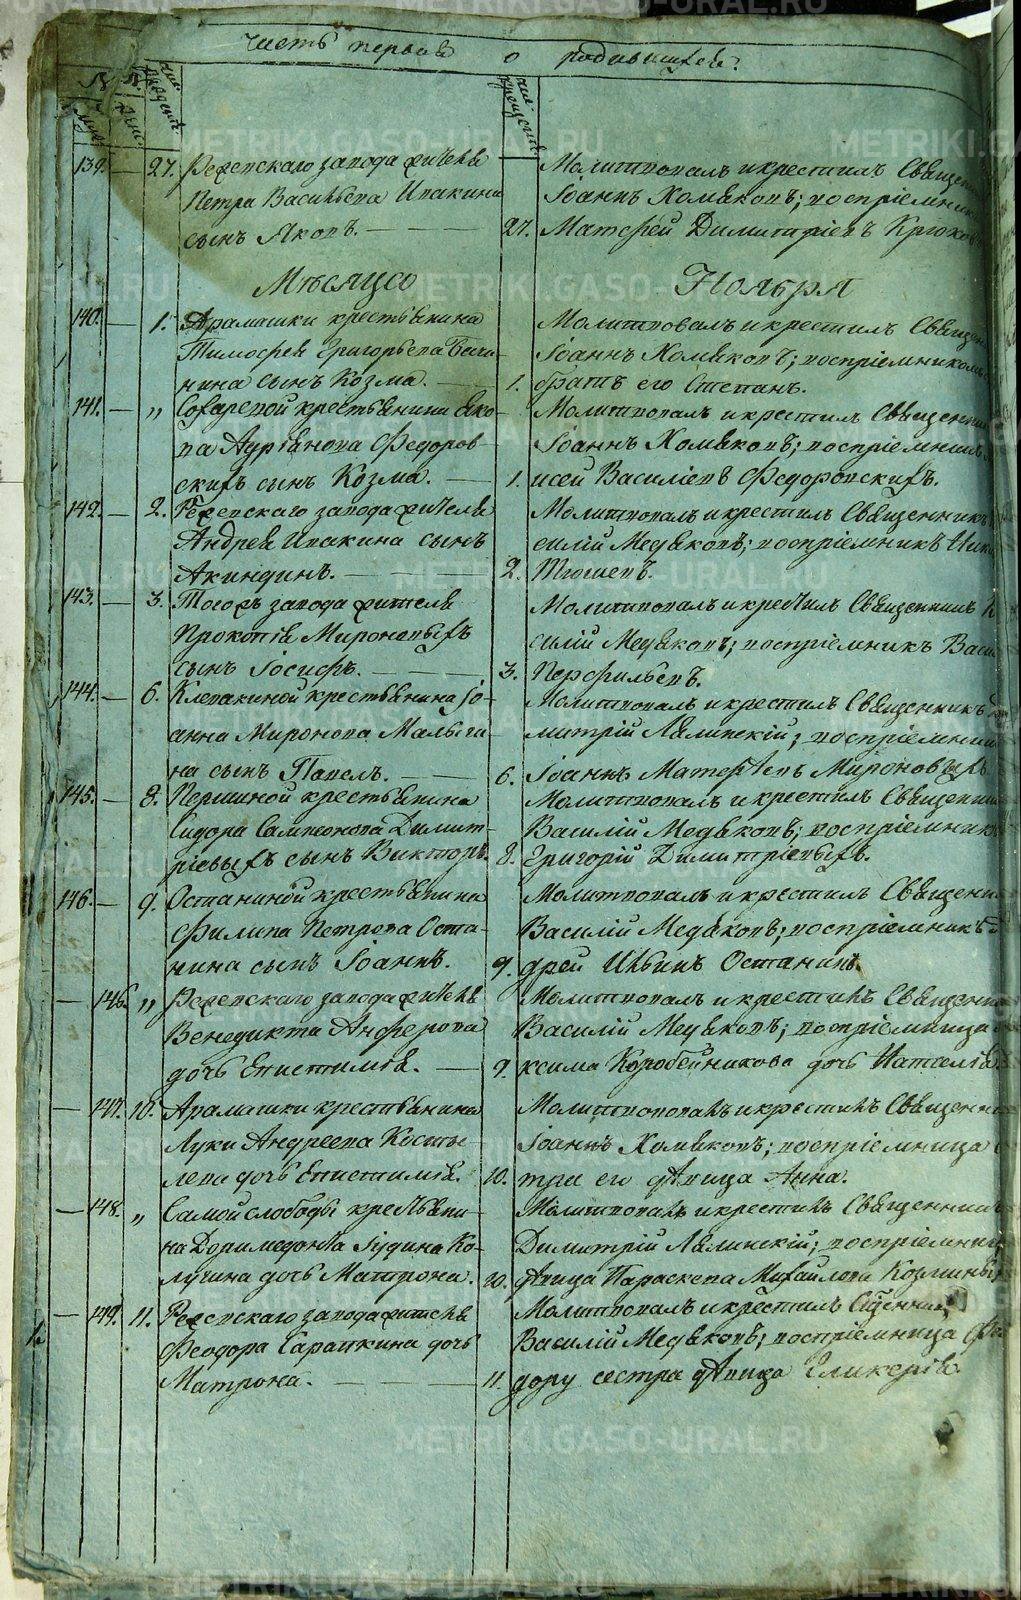 Часть первая о родившихся.
139. — 27. Режевскаго завода жителя
Петра Васильева Ипакина
сынъ Яковъ. —
Молитвовалъ и крестилъ Священ
Іоаннъ Хомяковъ; воспріемник
27. Матфей Димитріевъ Крюков
Мѣсяцо Ноября
140. — 1. Арамашки крестьянина
Тимофея Григорьева
нина сынъ Козма. —
Молитвовалъ и крестилъ Священ
Іоаннъ Хомяковъ; воспріемникомъ
1. братъ его Степанъ.
141. — „ Сохаревой крестьянина Яко-
ва Адріанова Федоров-
скихъ сынъ Козма. —
Молитвовалъ и крестилъ Священни
Іоаннъ Хомяковъ; воспріемникъ
1. исей Василіевъ Федоровскихъ.
142. — 2. Режевскаго завода жителя
Андрея Ипакина сынъ
Акиндинъ. —
Молитвовалъ и крестилъ Священникъ
силій Медяковъ; воспріемникъ Ник
2.
143. — 3. Тогожъ завода жителя
Прокопія Мироновыхъ
сынъ Іосифъ. —
Молитвовалъ и крестилъ Священникъ
силій Медяковъ; воспріемникъ Васи
3. Перфильевъ.
144. — 6. Клевакиной крестьянина Іо-
анна Миронова Малыги-
на сынъ Павелъ. —
Молитвовалъ и крестилъ Священникъ
митрій Ляпинскій; воспріемник
6. Іоаннъ Матфѣевъ Мироновыхъ.
145. — 8. Першиной крестьянина
Сидора Сампсонова Димит-
ріевыхъ сынъ Викторъ.
Молитвовалъ и крестилъ Священник
Василій Медяковъ; воспріемник
8. Григорій Димитріевыхъ.
146. — 9. Останиной крестьянина
Филипа Петрова Оста-
нина сынъ Іоаннъ.
Молитвовалъ и крестилъ Священни
Василій Медяковъ; воспріемникъ
9. дрей Ильинъ Останинъ.
— 146. „ Режевскаго завода жителя
Венедикта Анферова
дочь Епистимія. —
Молитвовалъ и крестилъ Священни
Василій Медяковъ; воспріемница
9. ксима Коробейникова дочь Наталія.
— 147. 10. Арамашки крестьянина
Луки Андреева Косты-
лева дочь Епистимія.
Молитвовалъ и крестилъ Священни
Іоаннъ Хомяковъ; воспріемница
10. три его дѣвица Анна.
— 148. „ Самой слободы крестьяни-
на Доримедонта Іудина Ко-
лугина дочь Матрона.
Молитвовалъ и крестилъ Священник
Димитрій Ляпинскій; воспріемниц
10. дѣвица Параскева Михайлова Козминых
— 149. 11. Режевскаго завода жителя
Феодора Сарапкина дочь
Матрона. —
Молитвовалъ и крестилъ Сщенник
Василій Медяковъ; воспріемница Фе
11. дору сестра дѣвица Гликерія.
METRIKI.GASO-URAL.RU